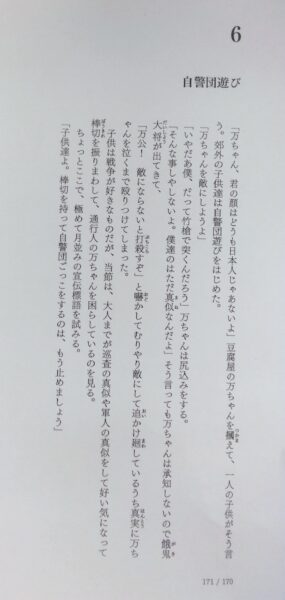 6
自警団遊び
「万ちゃん、君の顔はどうも日本人じゃあないよ」豆腐屋の万ちゃんを摑えて、一人の子供がそう言
う。郊外の子供達は自警団遊びをはじめた。
「万ちゃんを敵にしようよ」
「いやだあ僕、だって竹槍で突くんだろう」万ちゃんは尻込みをする。
「そんな事しやしないよ。僕達のはただ真似なんだよ」そう言っても万ちゃんは承知しないので餓鬼
大将が出てきて、
「万公! 敵にならないと打殺すぞ」と嚇かしてむりやり敵にして追かけ廻しているうち真実に万ち
ゃんを泣くまで殴りつけてしまった。
子供は戦争が好きなものだが、当節は、大人までが巡査の真似や軍人の真似をして好い気になって
棒切を振りまわして、通行人の万ちゃんを困らしているのを見る。
ちょっとここで、極めて月並みの宣伝標語を試みる。
「子供達よ。棒切を持って自警団ごっこをするのは、もう止めましょう」
171 / 170